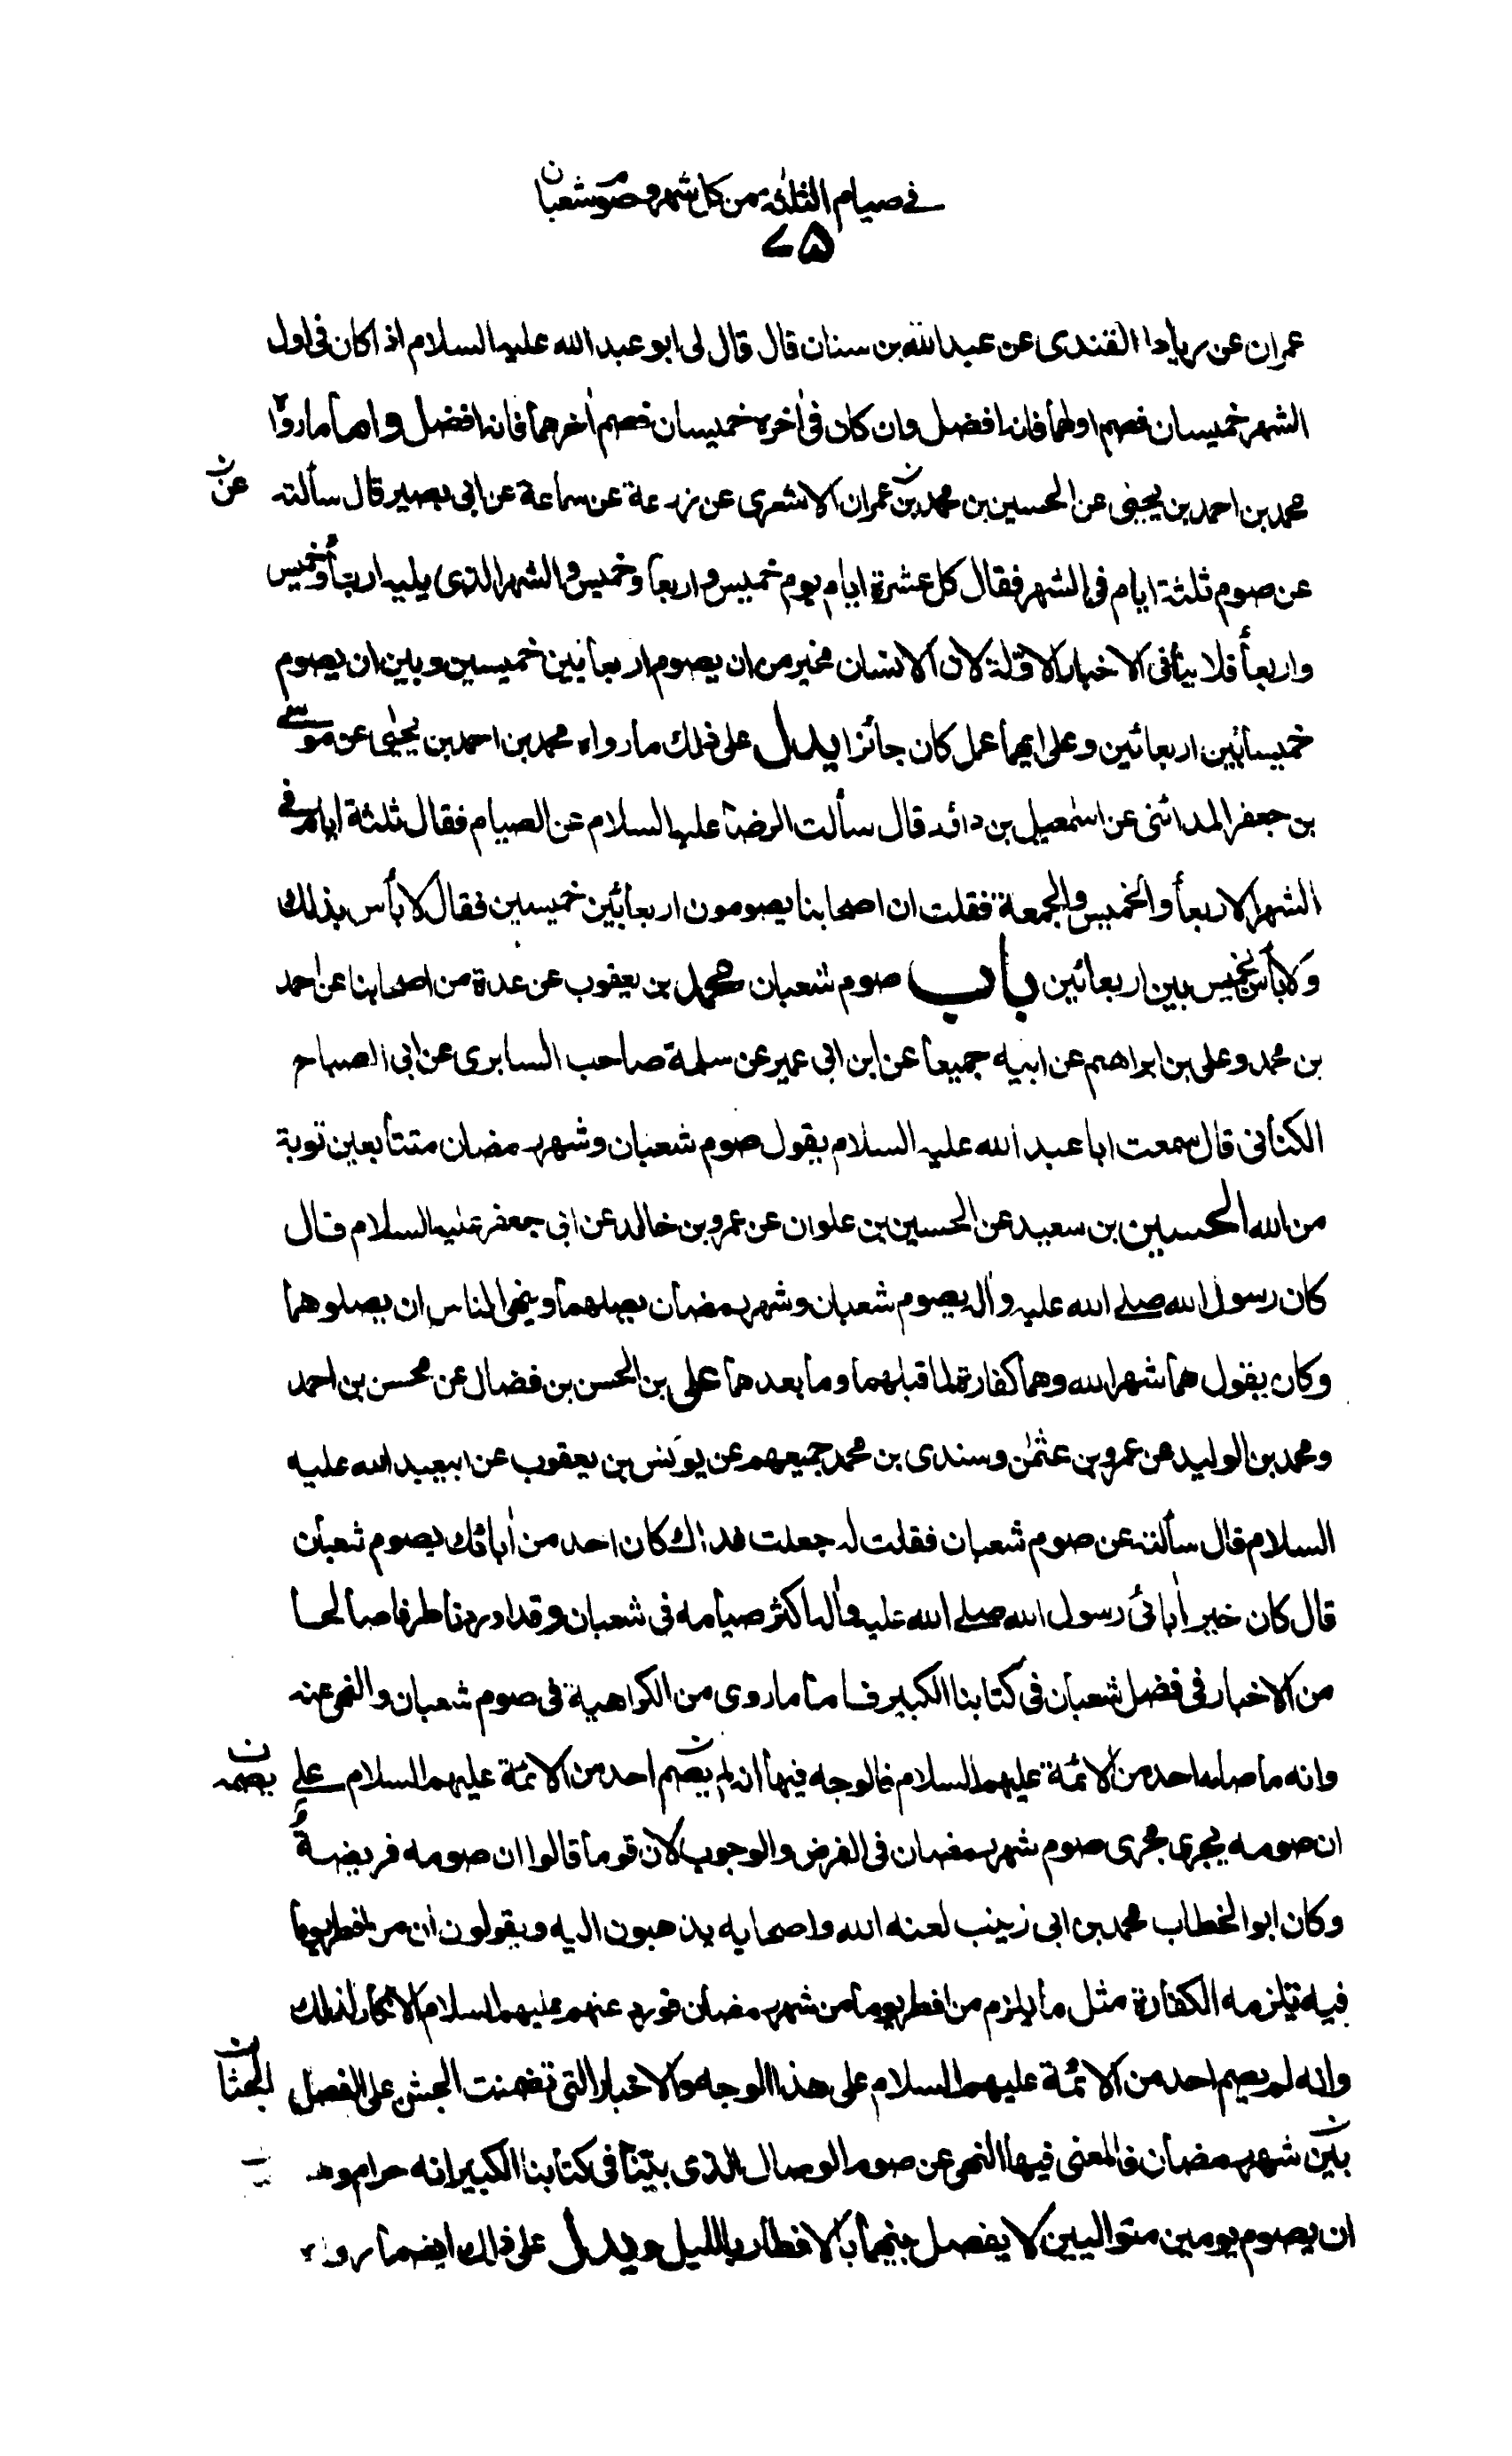 في صيام الثلثة من كل شهر و صوم شعبان
٧٥
عمران عن زياد القندى عن عبد الله بن سنان قال قال لى ابو عبد الله عليه السلام اذا كان فى اول
الشهر خميسان فصم اولهما فانه افضل وان كان فى اخره خميسان فصم اخرهما فانه افضل واما ما رواه
محمد بن احمد بن يحيى عن الحسين بن محمد بن عمران الاشعرى عن زرعة عن سماعة عن ابى بصير قال سألته
عن ن
عن صوم ثلثة ايام فى الشهر فقال كل عشرة ايام يوم خميس واربعا وخميس والشهر الذى يليه اربعأ وخميس
واربعأ فلا ينافى الاخبار الاوّلة لان الانسان مخير من ان يصوم اربعا بين خميسين وبين ان يصوم
خميسا بين اربعائين وعلى ايهما عمل كان جائزا يدل على ذلك ما رواه محمد بن احمد بن يحيى عن موسى
بن جعفر المدائنى عن اسمعيل بن دائد قال سألت الرضا عليه السلام عن الصيام فقال ثلثة ايام في
الشهر الاربعأ والخميس والجمعة فقلت ان اصحابنا يصومون اربعا بين خميسين فقال لا بأس بذلك
ولا بأس بخميس بين اربعائين باب صوم شعبان محمد بن يعقوب عن عدة من اصحابنا عن احمد
بن محمد وعلى بن ابراهيم عن ابيه جميعا عن ابن ابى عمير عن سلمة صاحب السابرى عن ابى الصباح
الكنانى قال سمعت ابا عبد الله عليه السلام يقول صوم شعبان وشهر رمضان متتابعين توبة
من الله الحسين بن سعيد عن الحسين بن علوان عن عمرو بن خالد عن ابى جعفر عليه السلام قال
كان رسول الله صلى الله عليه واله يصوم شعبان وشهر رمضان يصلهما وينهى الناس ان يصلوهما
وكان يقول هما شهر الله وهما كفارة لما قبلهما وما بعدهما على بن الحسن بن فضال عن محسن بن احمد
ومحمد بن الوليد عن عمرو بن عثمن وسندى بن محمد جميعهم عن يونس بن يعقوب عن ابيعبد الله عليه
السلام قال سألته عن صوم شعبان فقلت له جعلت فداك كان احد من ابائك يصوم شعبان
قال كان خير ابائى رسول الله صلى الله عليه واله اكثر صيامه فى شعبان وقد اوردنا طرفا صالحا
من الاخبار فى فضل شعبان فى كتابنا الكبير فاما ما روى من الكراهية فى صوم شعبان والنهى عنه
وانه ما صامه احد من الائمة عليهم السلام فالوجه فيها انه لم يصم احد من الائمة عليهم السلام على
يصمه ن
ان صومه يجرى مجرى صوم شهر رمضان فى الفرض والوجوب لان قوما قالوا ان صومه فريضة
وكان ابو الخطاب محمد بن ابى زينب لعنه الله واصحابه يذهبون اليه ويقولون ان من افطر يوما
فيه يلزمه الكفارة مثل ما يلزم من افطر يوما من شهر رمضان فورد عنهم عليهم السلام الانكار لذلك
وانه لم يصم احد من الائمة عليهم السلام على هذا الوجه والاخبار التى تضمنت الحث على الفصل
بين شهر رمضان فالمعنى فيها النهى عن صوم الوصال الذى بيّنا فى كتابنا الكبير انه حرام وهو
ان يصوم يومين متواليين لا يفصل بينهما بالافطار بالليل ويدل على ذلك ايضا ما رواه